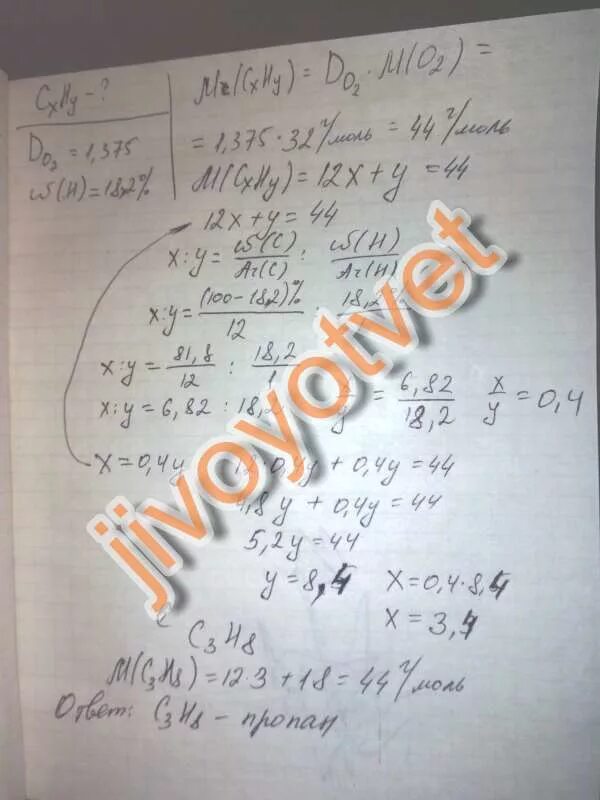 CxHy - ?
D O2 = 1,375
ω(H) = 18,2%
Mr(CxHy) = D O2 · M(O2) =
= 1,375 · 32 г/моль = 44 г/моль
M(CxHy) = 12x + y = 44
12x + y = 44
x : y = ω(C)/Ar(C) : ω(H)/Ar(H)
x : y = (100 - 18,2)%/12 : 18,2%
x : y = 81,8/12 : 18,2/1
x : y = 6,82 : 18,2 x/y = 6,82/18,2 x/y = 0,4
x = 0,4y 12·0,4y + 0,4y = 44
4,8y + 0,4y = 44
5,2y = 44
y = 8,4 x = 0,4·8,4
x = 3,4
C3H8
M(C3H8) = 12·3 + 1·8 = 44 г/моль
Ответ: C3H8 - пропан
jivoyotvet